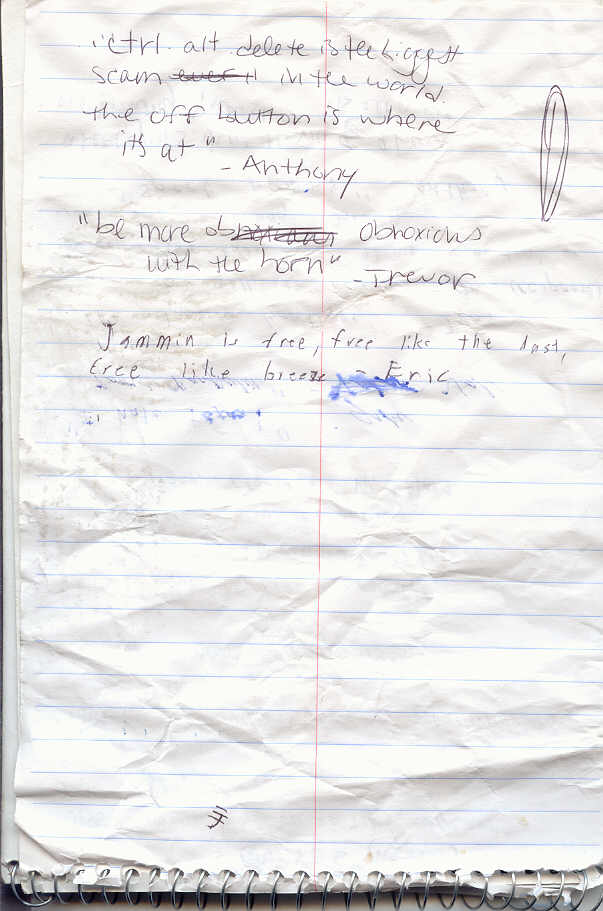 "Ctrl. alt. delete is the biggest
scam ever in the world.
the off button is where
it's at"
- Anthony
"be more obnoxious
with the horn"
- Trevor
Jammin is free, free like the
free like breeze - Eric